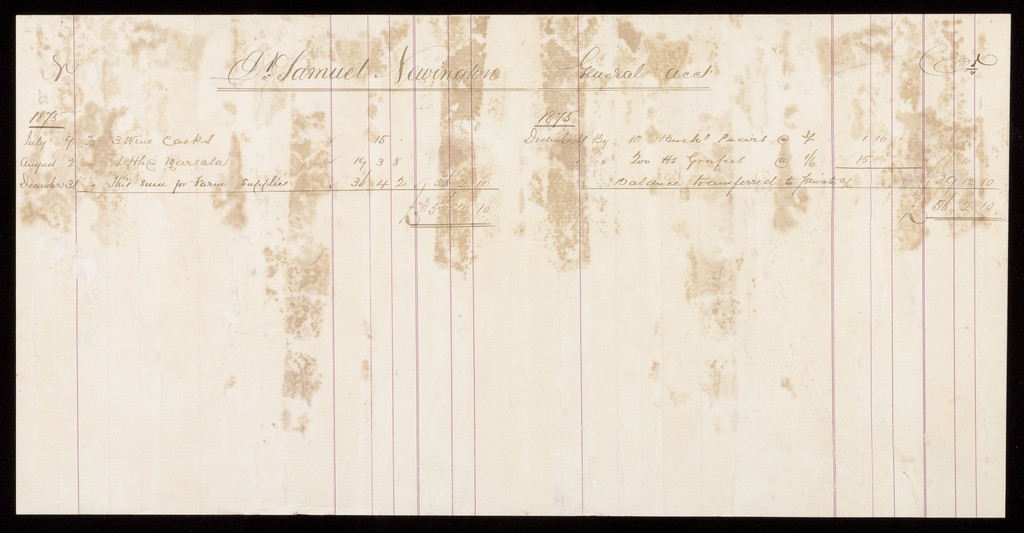 Dr
Dr. Samuel Newington General Acct
Cr
1875
July 9 To 3 Wine Casks 15 .
August 2 " 1 Hhd Marsala 19 3 8
December 31 " This sum for Farm Supplies 36 4 2 56 2 10
£ 56 2 10
1875
December 31 By 10 Bush.s Pears @ 3/ 1 10
" " 200 lbs Grapes @ 1/6 15 16 10
Balance transferred to Private a/c 39 12 10
£ 56 2 10